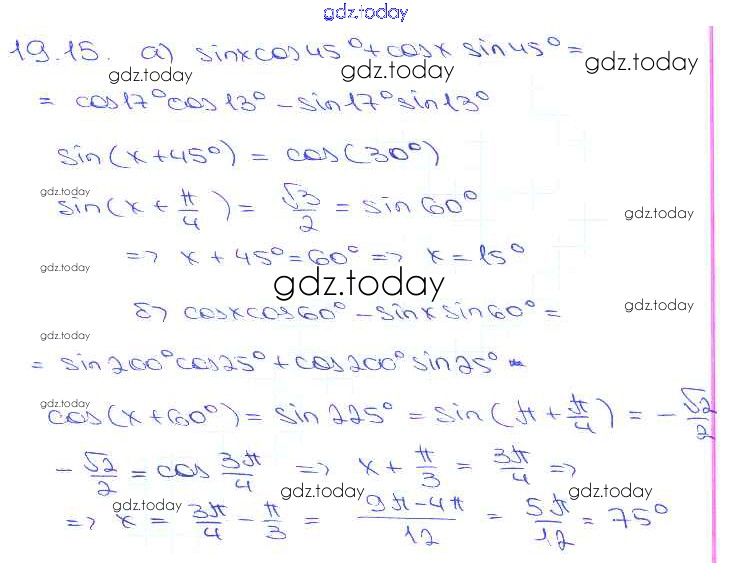 gdz.today
19.15. а) sinxcos45°+cosx sin45°=
gdz.today gdz.today gdz.today
= cos17°cos13° - sin17°sin13°
sin(x+45°) = cos(30°)
gdz.today
sin(x + π/4) = √3/2 = sin 60°
gdz.today
=> x + 45° = 60° => x = 15°
gdz.today
gdz.today
б) cosxcos60° - sinx sin60° =
gdz.today
gdz.today
= sin200°cos25° + cos200° sin25°
gdz.today
cos(x+60°) = sin 225° = sin(π + π/4) = -√2/2
-√2/2 = cos 3π/4 => x + π/3 = 3π/4 =>
gdz.today gdz.today gdz.today
=> x = 3π/4 - π/3 = (9π-4π)/12 = 5π/12 = 75°